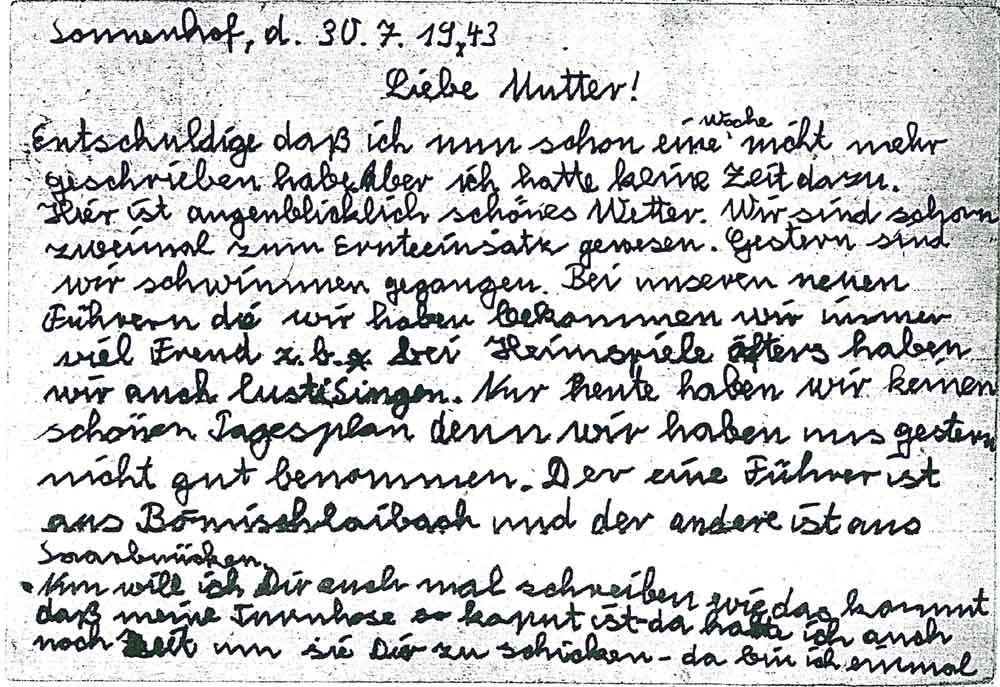 Sonnenhof, d. 30.7.1943
Liebe Mutter!
Woche
Entschuldige daß ich nun schon eine nicht mehr
geschrieben habe Aber ich hatte keine Zeit dazu.
Hier ist augenblicklich schönes Wetter. Wir sind schon
zweimal zum Ernteeinsatz gewesen. Gestern sind
wir schwimmen gegangen. Bei unseren neuen
Führern die wir haben bekommen wir immer
viel Freud z.b. bei Heimspiele öfters haben
wir auch Singen. Nur heute haben wir keinen
schönen Tagesplan denn wir haben uns gestern
nicht gut benommen. Der eine Führer ist
aus Bömischlaibach und der andere ist aus
Saarbrücken.
Nun will ich Dir auch mal schreiben wie das kommt
daß meine Turnhose so kaput ist - da hatte ich auch
noch Zeit um sie Dir zu schicken - da bin ich einmal